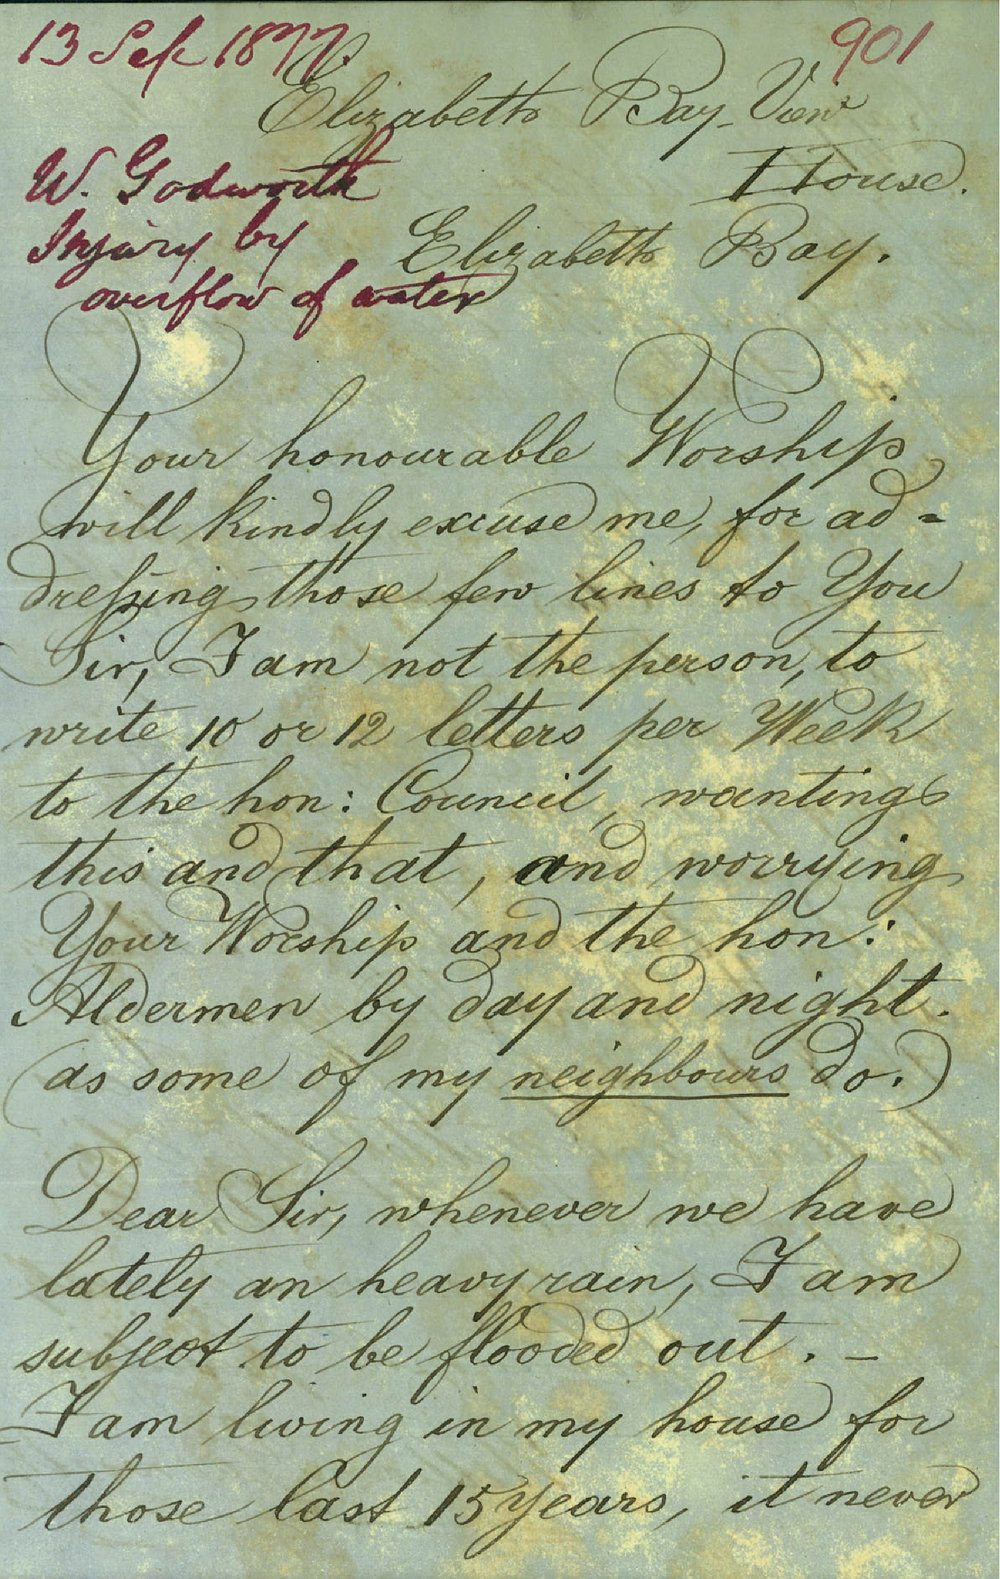 13 Sep 1877.
901
Elizabeth Bay View
House.
W. Godworth
Injury by
overflow of water
Elizabeth Bay.
Your honourable Worship
will kindly excuse me, for ad=
dreſsing those few lines to You
Sir, I am not the person, to
write 10 or 12 letters per Week
to the hon: Council, wanting
this and that, and worrying
Your Worship and the hon:
Aldermen by day and night.
(as some of my neighbours do.)
Dear Sir, whenever we have
lately an heavy rain, I am
subject to be flooded out. –
I am living in my house for
those last 15 years, it never